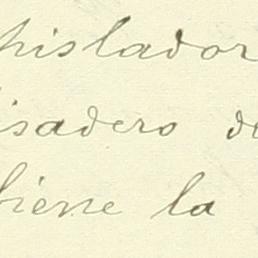 hislador
isadero de
biene la